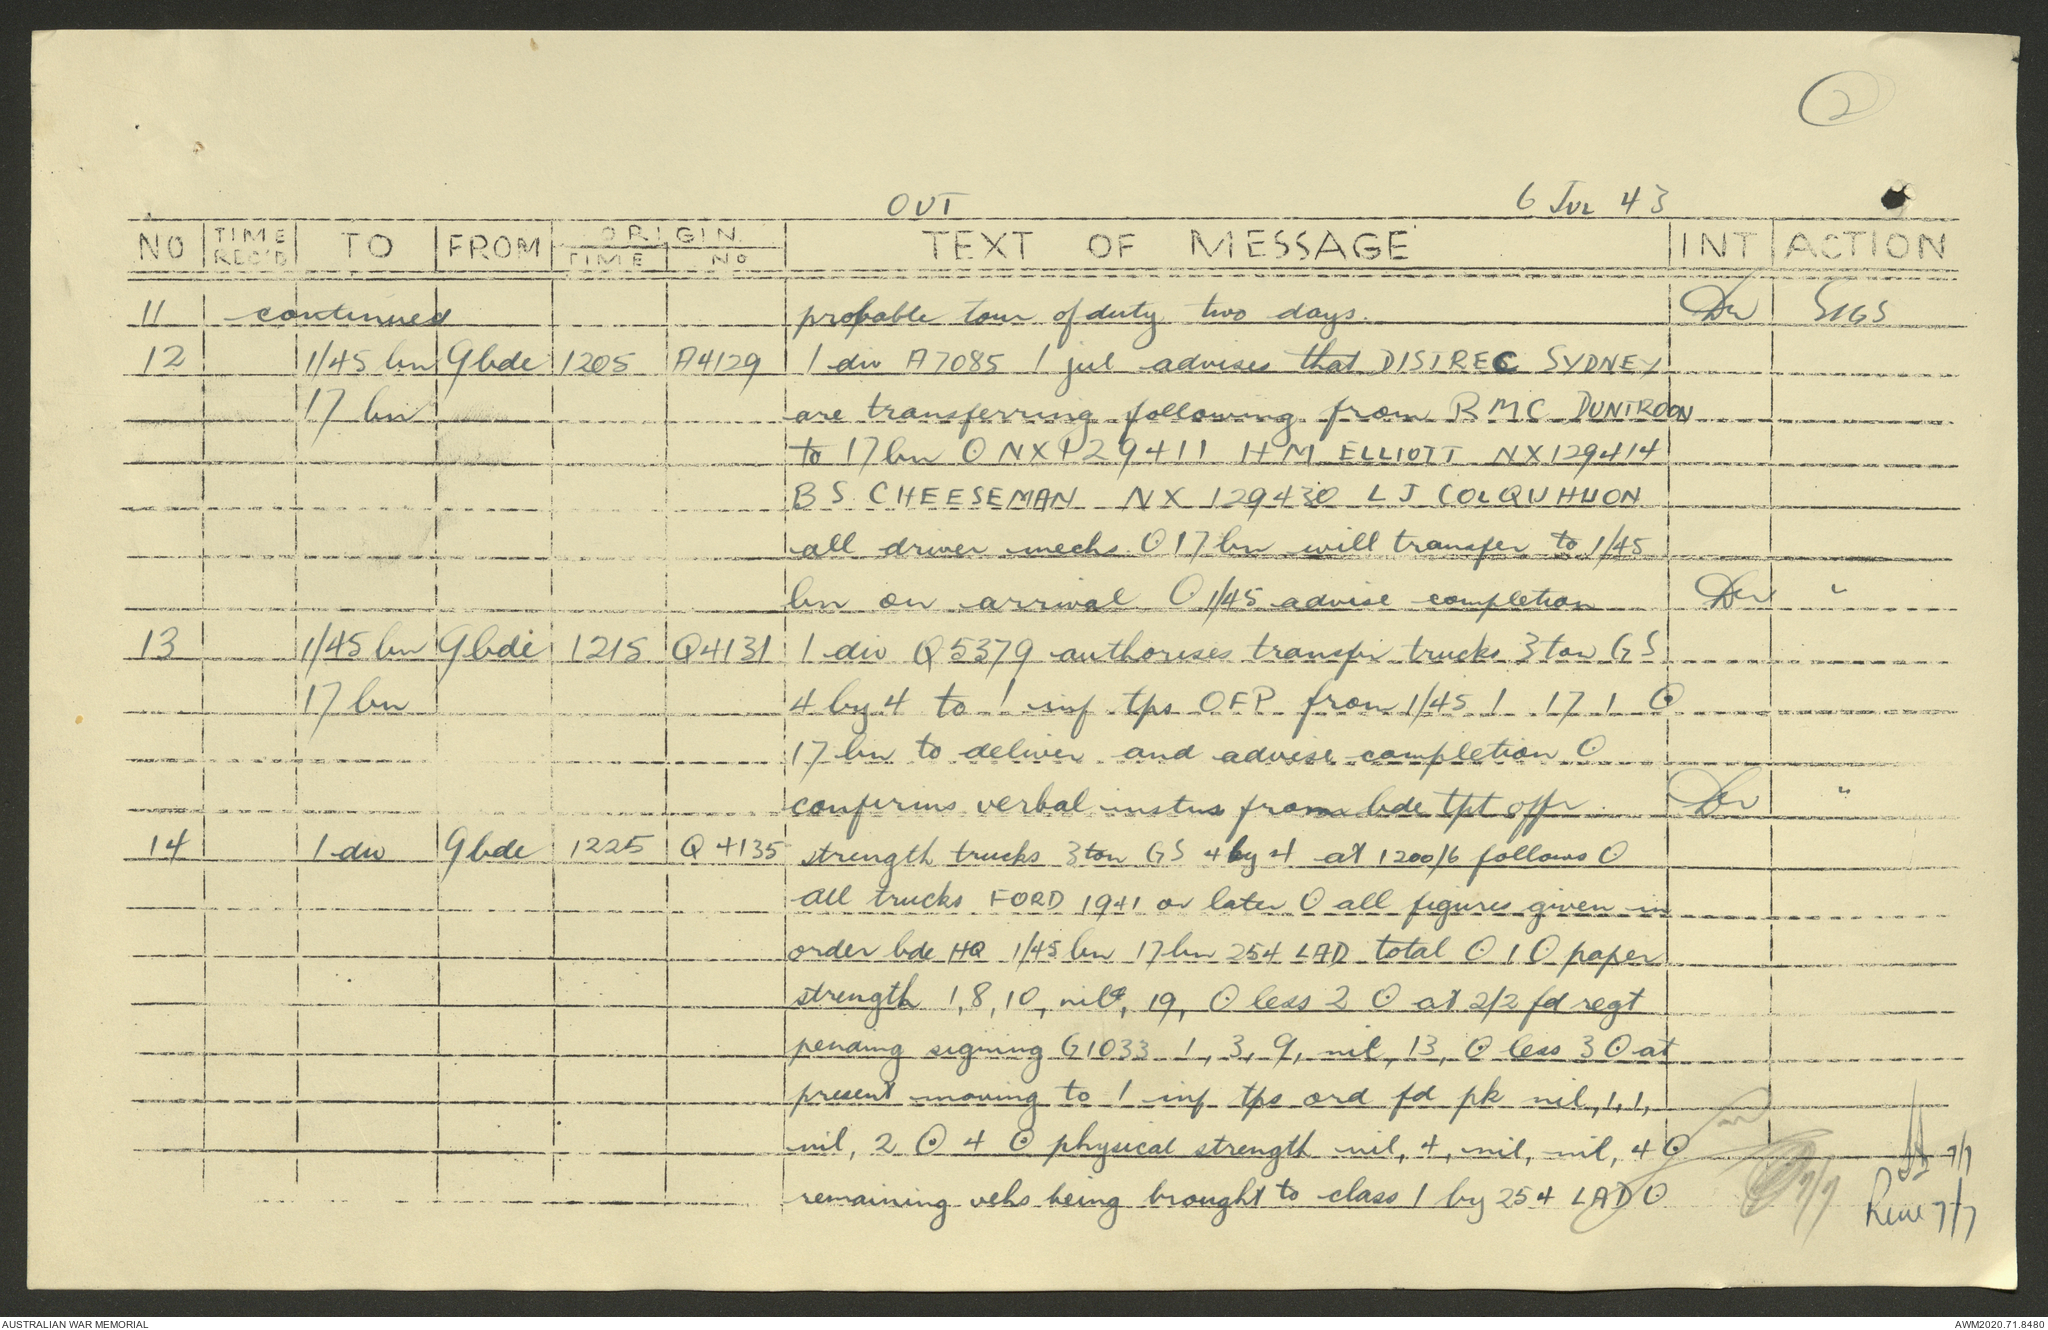 2
OUT 6 JUL 43
NO TIME REC'D TO FROM ORIGIN TIME No TEXT OF MESSAGE INT ACTION
11 continued probable tour of duty two days. SIGS
12 1/45 bn 9 bde 1205 A4129 1 div A7085 1 jul advises that DISTREC SYDNEY
17 bn are transferring following from RMC DUNTROON
to 17 bn ⊙ NX129411 HM ELLIOTT NX129414
BS CHEESEMAN NX 129430 LJ COLQUHUON
all driver mechs ⊙ 17 bn will transfer to 1/45
bn on arrival ⊙ 1/45 advise completion "
13 1/45 bn 9 bde 1215 Q4131 1 div Q5379 authorises transfer trucks 3 ton GS
17 bn 4 by 4 to 1 inf tps OFP from 1/45 1 17 1 ⊙
17 bn to deliver and advise completion ⊙
confirms verbal instns from bde tpt offr. "
14 1 div 9 bde 1225 Q4135 strength trucks 3 ton GS 4 by 4 at 1200/6 follows ⊙
all trucks FORD 1941 or later ⊙ all figures given in
order bde HQ 1/45 bn 17 bn 254 LAD total ⊙ 1 ⊙ paper
strength 1, 8, 10, nil, 19, ⊙ less 2 ⊙ at 2/2 fd regt
pending signing G1033 1, 3, 9, nil, 13, ⊙ less 3 ⊙ at
present moving to 1 inf tps ord fd pk nil, 1, 1,
nil, 2 ⊙ 4 ⊙ physical strength nil, 4, nil, nil, 4 ⊙
remaining vehs being brought to class 1 by 254 LAD ⊙
7/7
7/7
7/7
AUSTRALIAN WAR MEMORIAL AWM2020.71.8480